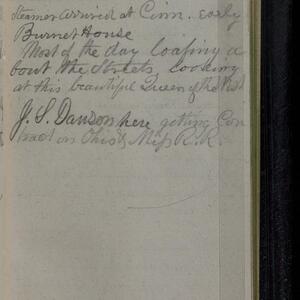 Steamer arrived at Cinn. early
Burnet House
Most of the day loafing a
bout the Streets looking
at this beautiful Queen of the West
J. S. Dawson here getting Con
tract on Ohio & Miss R.R.